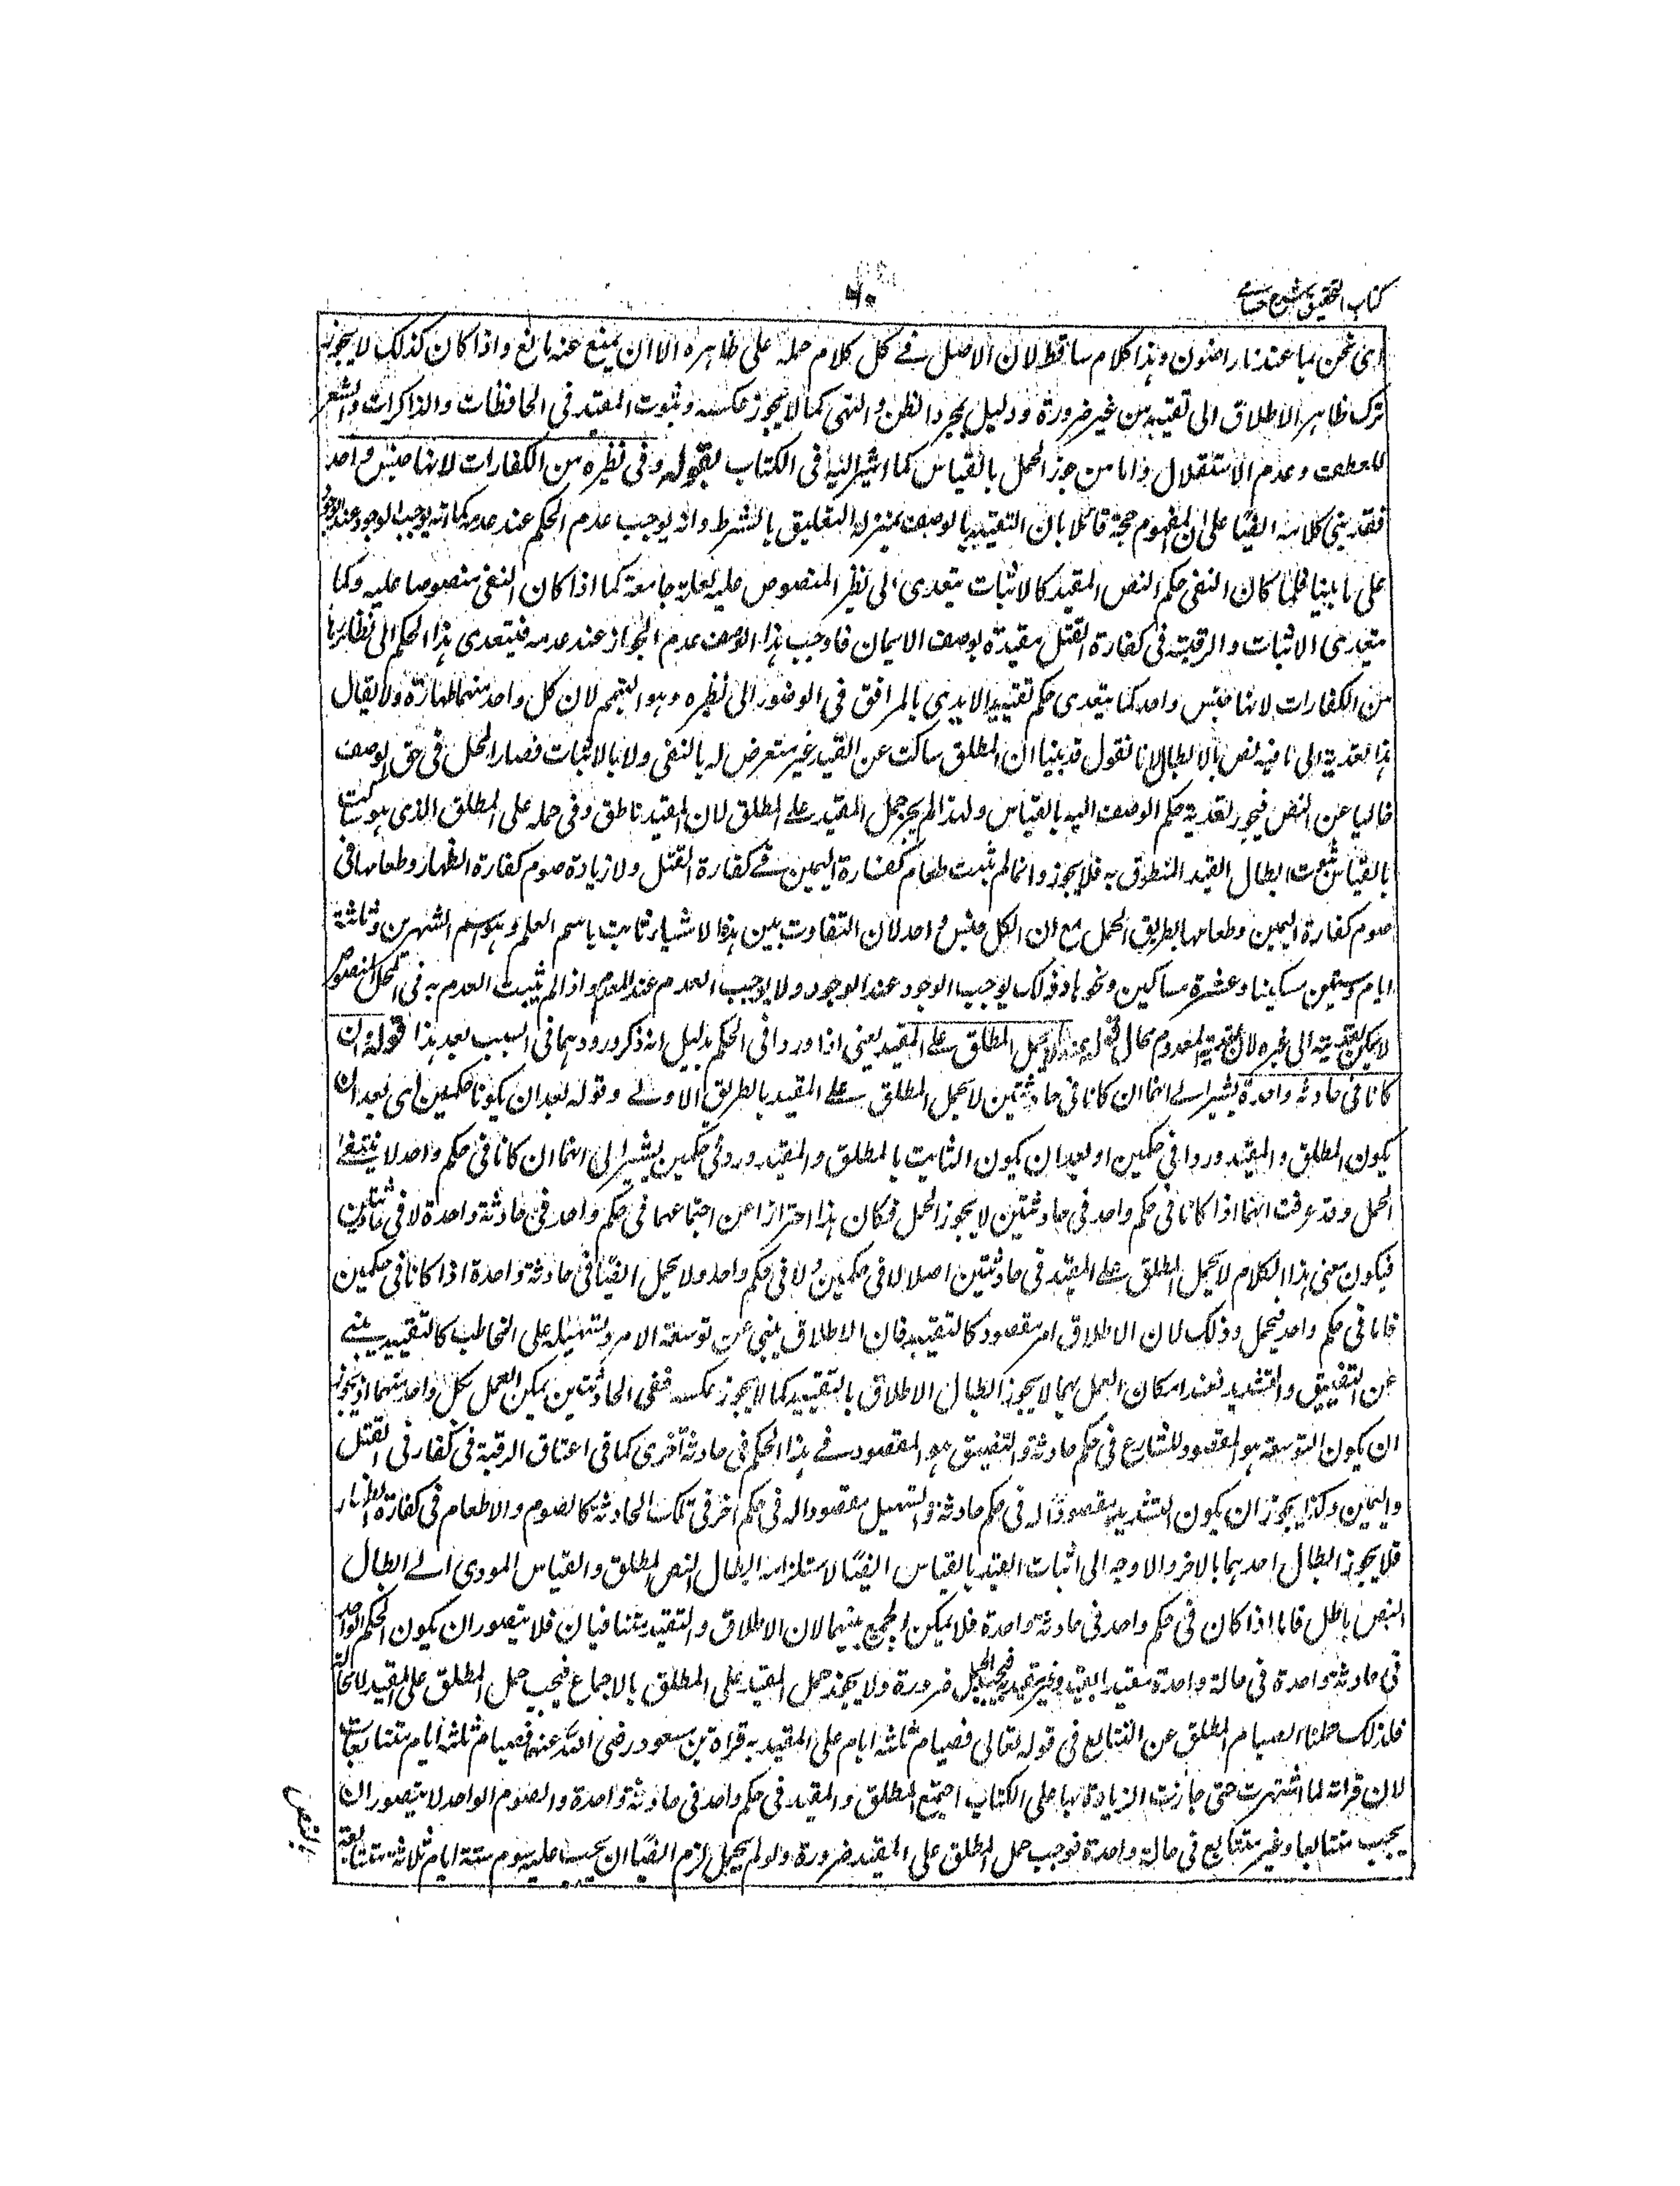 كتاب التحقيق شرح حسامي
٧٠
اى نحن بما عندنا راضون وهذا كلام ساقط لان الاصل فے كل كلام حمله على ظاهره الا ان يمنع عنه مانع واذا كان كذلك لا يجوز
ترك ظاهر الاطلاق الى تقييد من غير ضرورة ودليل بمجرد الظن والتهى كما لا يجوز عكسه وثبوت المقيد فى الحافظات والذاكرات والشعر
للعطف وعدم الاستقلال واما من جوز الحمل بالقياس كما اشير اليه فى الكتاب بقوله وفى نظيره من الكفارات لانها جنس واحد
فقد بنى كلامه ايضا على ان المفهوم حجة قائلا بان التقييد بالوصف بمنزلة التعليق بالشرط وانه يوجب عدم الحكم عند عدمه كما انه يوجب الوجود عند الوجود
على ما بينا فلما كان النفى حكم النص المقيد كالاثبات يتعدى الى نظير المنصوص عليه بعلة جامعة كما اذا كان النفى منصوصا عليه وكما
يتعدى الاثبات والرقبة فى كفارة القتل مقيدة بوصف الايمان فاوجب هذا الوصف عدم الجواز عند عدمه فيتعدى هذا الحكم الى نظايرها
من الكفارات لانها جنس واحد كما يتعدى حكم تقييد الايدى بالمرافق فى الوضوء الى نظيره وهو التيمم لان كل واحد منهما طهارة ولا يقال
هذا تعدية الى ما فيه نص بالابطال لانا نقول قد بينا ان المطلق ساكت عن القيد غير متعرض له بالنفى ولا بالاثبات فصار المحل فى حق الوصف
خاليا عن النص فيجوز تعدية حكم الوصف اليه بالقياس ولهذا لم يجز حمل المقيد علے المطلق لان المقيد ناطق وفى حمله على المطلق الذى هو ساكت
بالقياس ابطال القيد المنطوق به فلا يجوز وانما لم يثبت طعام كفارة اليمين فے كفارة القتل ولا زيادة صوم كفارة الظهار وطعامها فى
صوم كفارة اليمين وطعامها بطريق الحمل مع ان الكل جنس واحد لان التفاوت بين هذه الاشياء ثابت باسم العلم وهو اسم الشهرين وثلثة
ايام وستين مسكينا وعشرة مساكين ونحوها وذلك يوجب الوجود عند الوجود ولا يوجب العدم عند العدم واذا لم يثبت العدم به فى المحل المنصوص
لا يمكن تعديته الى غيره لان تعدية المعدوم محال قوله وعندنا لا يحمل المطلق علے المقيد يعنى اذا وردا فى الحكم بدليل انه ذكر ورودهما فى السبب بعد هذا قوله وان
كانا فى حادثة واحدة يشير الے انهما ان كانا فى حادثتين لا يحمل المطلق علے المقيد بالطريق الاولے وقوله بعد ان يكونا حكمين اى بعد ان
يكون المطلق والمقيد وردا فى حكمين او بعد ان يكون الثابت بالمطلق والمقيد وردى حكمين يشير الى انهما ان كانا فى حكم واحد لا ينتفے
الحمل وقد عرفت انهما اذا كانا فى حكم واحد فى حادثتين لا يجوز الحمل فكان هذا احترازا عن اجتماعهما فى حكم واحد فى حادثة واحدة لا فى حادثتين
فيكون معنى هذا الكلام لا يحمل المطلق علے المقيد فى حادثتين اصلا لا فى حكمين ولا فى حكم واحد ولا يحمل ايضا فى حادثة واحدة اذا كانا فى حكمين
فاما فى حكم واحد فيحمل وذلك لان الاطلاق امر مقصود كالتقييد فان الاطلاق ينبى عن توسعة الامر وتسهيله على المخاطب كالتقييد ينبے
عن التضييق والتشديد فعند امكان العمل بهما لا يجوز ابطال الاطلاق بالتقييد كما لا يجوز عكسه ففى الحادثتين يمكن العمل بكل واحد منهما اذ يجوز
ان يكون التوسعة هو المقصود للشارع فى حكم حادثة والتضييق هو المقصود فے هذا الحكم فى حادثة اخرى كما فى اعتاق الرقبة فى كفارتى القتل
واليمين وكذا يجوز ان يكون التشديد مقصودا له فى حكم حادثة والتسهيل مقصودا له فى حكم اخر فى تلك الحادثة كالصوم والاطعام فى كفارة الظهار
فلا يجوز ابطال احدهما بالاخر والا وجه الى اثبات القيد بالقياس ايضا لاستلزامه ابطال النص المطلق والقياس المودى الے ابطال
النص باطل فاما اذا كان فى حكم واحد فى حادثة واحدة فلا يمكن الجمع بينهما لان الاطلاق والتقييد متنافيان فلا يتصور ان يكون الحكم الواحد
فى حادثة واحدة فى حالة واحدة مقيدا بقيد وغير مقيد به فيجب الحمل ضرورة ولا يجوز حمل المقيد على المطلق بالاجماع فيجب حمل المطلق على المقيد لا محالة
فلذلك حملنا الصيام المطلق عن التتابع فى قوله تعالى فصيام ثلثة ايام على المقيد به قراة بن مسعود رضى الله عنه فصيام ثلثة ايام متتابعات
لان قراته لما اشتهرت حتى جازت الزيادة بها على الكتاب اجتمع المطلق والمقيد فى حكم واحد فى حادثة واحدة والصوم الواحد لا يتصور ان
يجب متتابعا وغير متتابع فى حالة واحدة فوجب حمل المطلق على المقيد ضرورة ولو لم يحمل لزم ايضا ان يجب عليه صوم ستة ايام ثلاثة متتابعة
بالنص